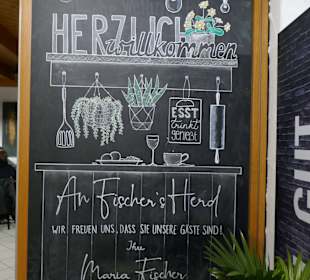 HERZLICH
willkommen
ESST
trinkt
genießt
An Fischer's Herd
WIR FREUEN UNS, DASS SIE UNSERE GÄSTE SIND!
Ihre
Maria Fischer
GUT